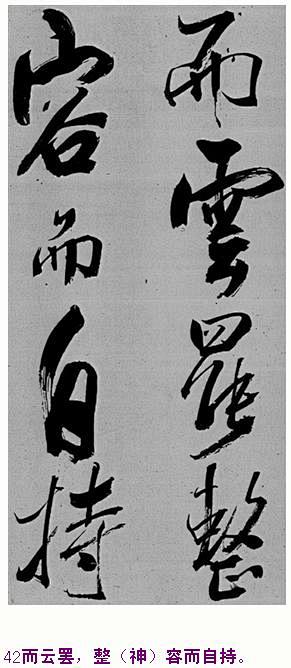 而雲罷整
容而自持
42而云罢，整（神）容而自持。